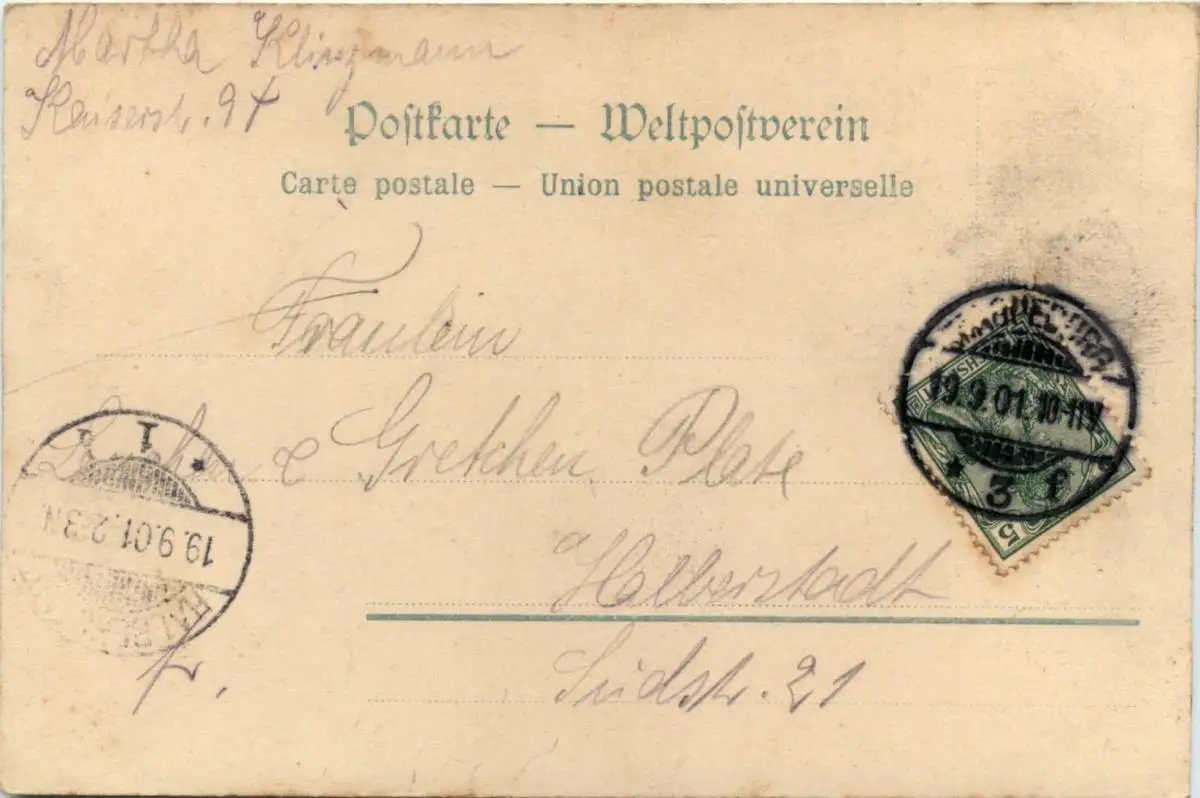 Martha Klingmann
Kaiserstr. 94
Postkarte — Weltpostverein
Carte postale — Union postale universelle
Fräulein
& Gretchen Plate
Halberstadt
Südstr. 21
fr.
19.9.01. 10-11V
* 3 f
5
1
19.9.01. 2-3N